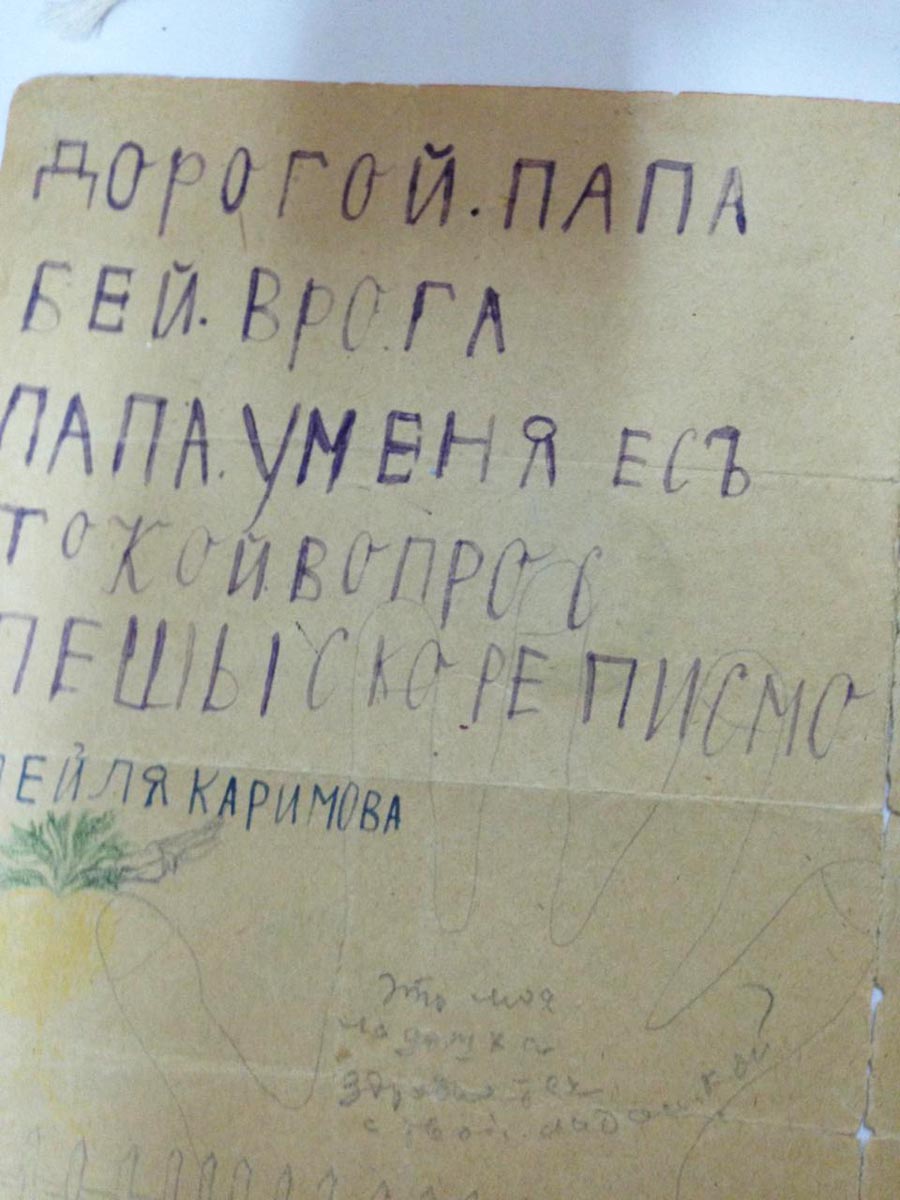 ДОРОГОЙ. ПАПА
БЕЙ. ВРО.ГА
ПАПА. УМЕНЯ ЕСЪ
ТОКОЙ ВОПРОС
ПЕШЫ СКОРЕ ПИСМО
ЛЕЙЛЯ КАРИМОВА
Это моя
ладошка
с твоей ладошкой